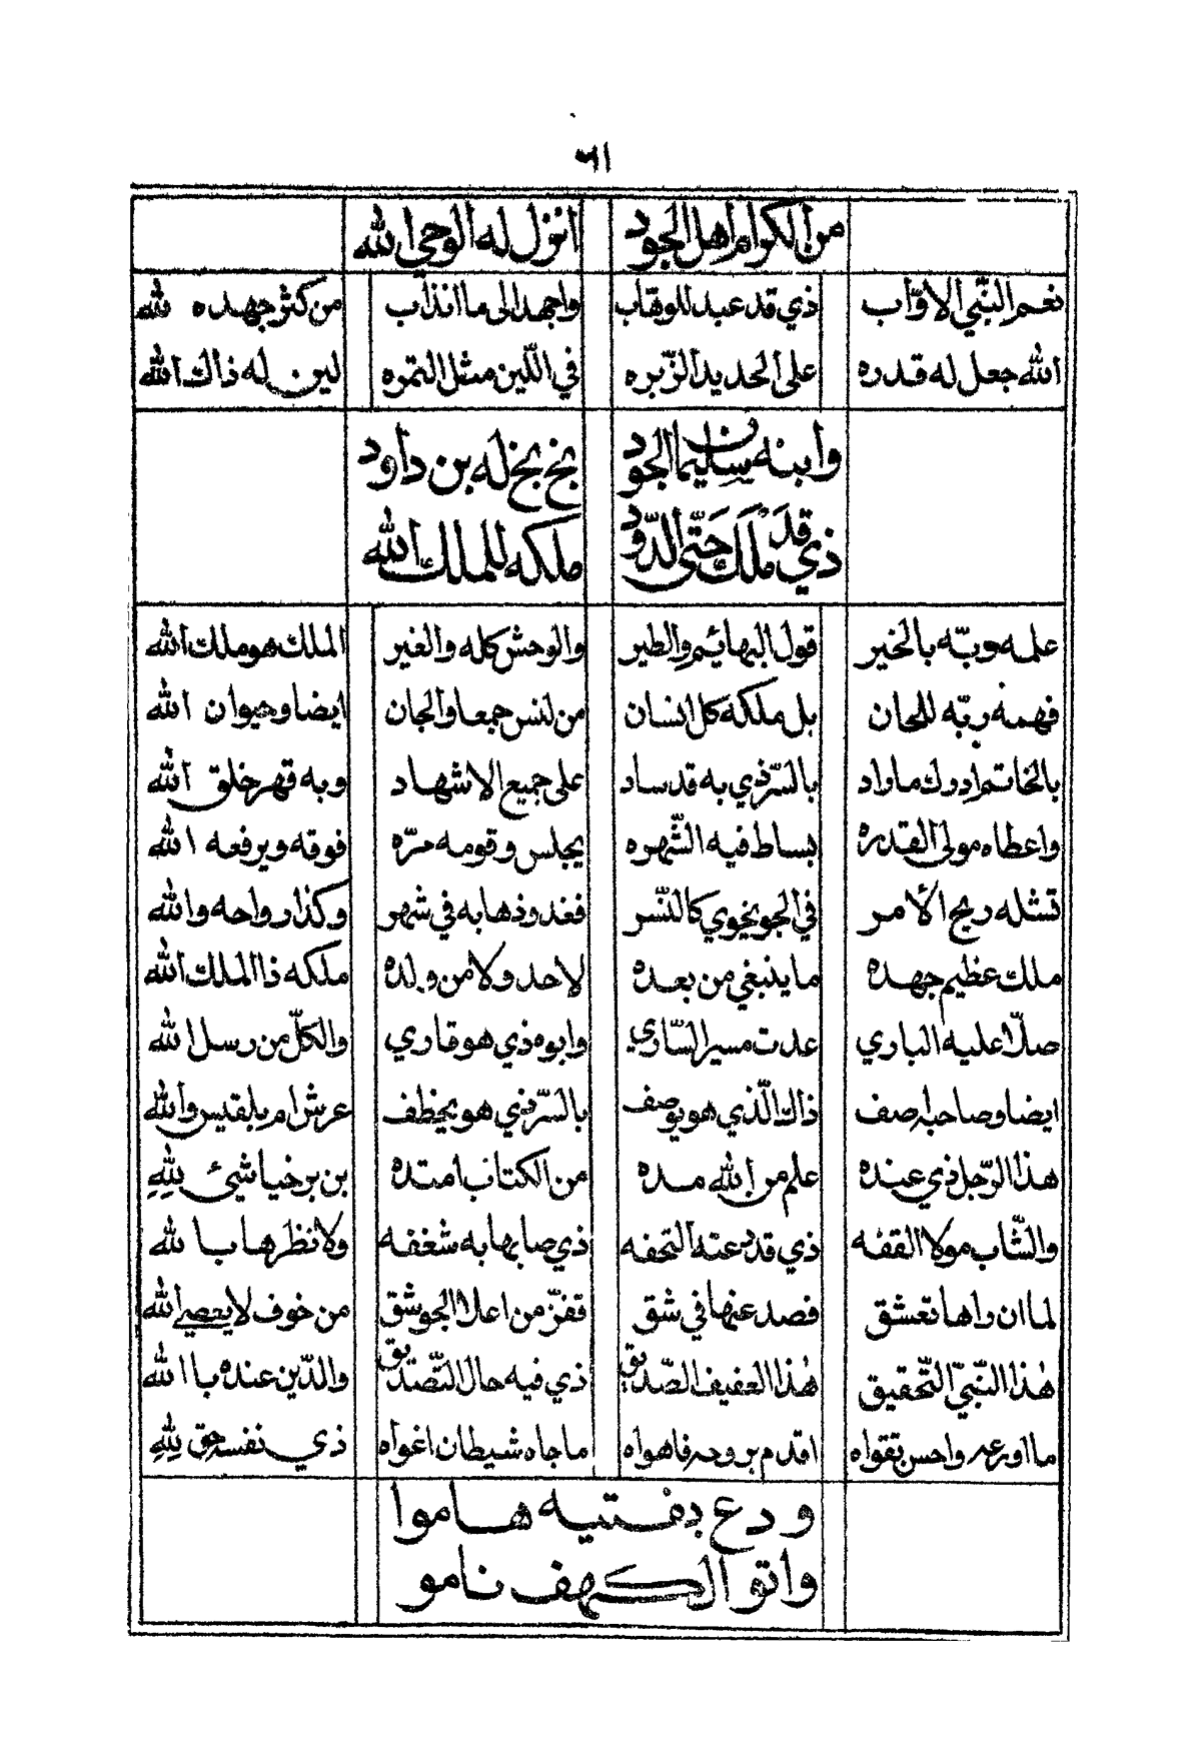 ٦١
من الكرام اهل الجود انزل له الوحي الله
نعم النّبي الاوّاب ذي قد عبد للوهاب واجهد الى ما انذاب من كثر جهده لله
الله جعل له قدره على الحديد الزّبره في اللّين مثل التمره لين له ذاك الله
وابنه سليمان الجود بخ بخ له بن داود
ذي قد ملك حَتّى الدّود ملكه للملك الله
علمه وبّه بالخير قول البهائم والطير والوحش كله والغير الملك هو ملك الله
فهمه ربّه للحان بل ملكه كل انسان من لنس جمعا والجان ايضا وحيوان الله
بالخاتم ادرك ما راد بالسّر ذي به قد ساد على جميع الاشهاد وبه قهر خلق الله
واعطاه مولى القدره بساط فيه الشّهره يجلس وقومه مرّه فوقه ويرفعه الله
تشله ريح الأمر في الجو يخوي كالنّسر فغدو ذهابه في شهر وكذا رواحه والله
ملك عظيم جهده ما ينبغي من بعده لاحد ولا من ولده ملكه ذا الملك الله
صلّا عليه الباري عدت مسير السّاري وابوه ذي هو قاري والكلّ من رسل الله
ايضا وصاحبه اصف ذاك الّذي هو يوصف بالسّر ذي هو يخطف عرش ام بلقيس والله
هذا الرّجل ذي عنده علم من الله مده من الكتاب امتده بن برخيا شيئ لِلّهِ
والشّاب مولا القفه ذي قد عته التحفه ذي صابها به شغفه ولا نظرها با لله
لما ان راها تعشق فصد عنها في شق قفزّ من اعلا الجو شق من خوف لا يعصي الله
هٰذا النّبيّ التّحقيق هٰذا العفيف الصّديق ذي فيه حال التّصديق والدّين عنده با الله
ما اورعه واحسن تقواه اقدم بروحه فاهواه ما جاه شيطان اغواه ذي نفسه حق لِلّهِ
ودع بفتيه هاموا
واتو الكهف نامو